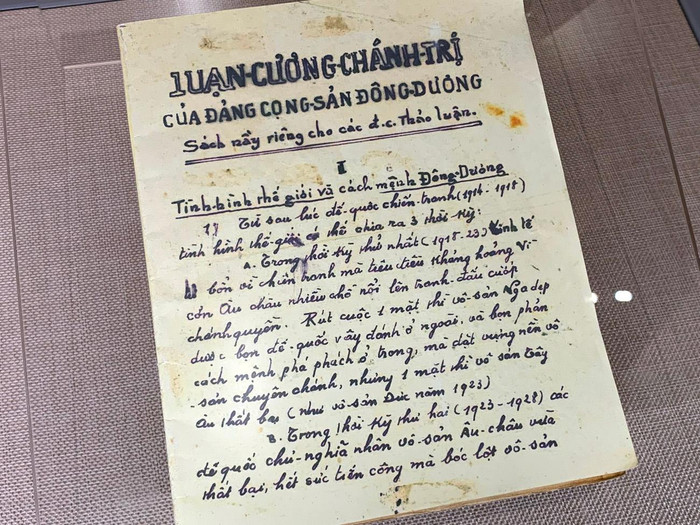 LUẬN-CƯƠNG-CHÁNH-TRỊ
CỦA ĐẢNG CỘNG-SẢN ĐÔNG-DƯƠNG
Sách nầy riêng cho các đ.c. thảo luận.
I
Tình-hình thế giới và cách mệnh Đông-Dương
1) Từ sau lúc đế-quốc chiến-tranh (1914-1918)
tình hình thế-giới có thể chia ra 3 thời kỳ:
A. Trong thời kỳ thứ nhất (1918-23) kinh tế
tư bổn vì chiến tranh mà tiêu điều khủng hoảng. Vì
cớn Âu châu nhiều chỗ nổi lên tranh-đấu cướp
chánh quyền. Rút cuộc 1 mặt thì vô-sản Nga dẹp
được bọn đế-quốc vây đánh ở ngoài, và bọn phản
cách mệnh phá phách ở trong, mà đặt vững nền vô
sản chuyên chánh, nhưng 1 mặt thì vô sản tây
Âu thất bại (như vô-sản Đức năm 1923)
B. Trong thời kỳ thứ hai (1923-1928) các
đế quốc chủ-nghĩa nhân vô-sản Âu-châu vừa
thất bại, hết sức tiến công mà bóc lột vô-sản